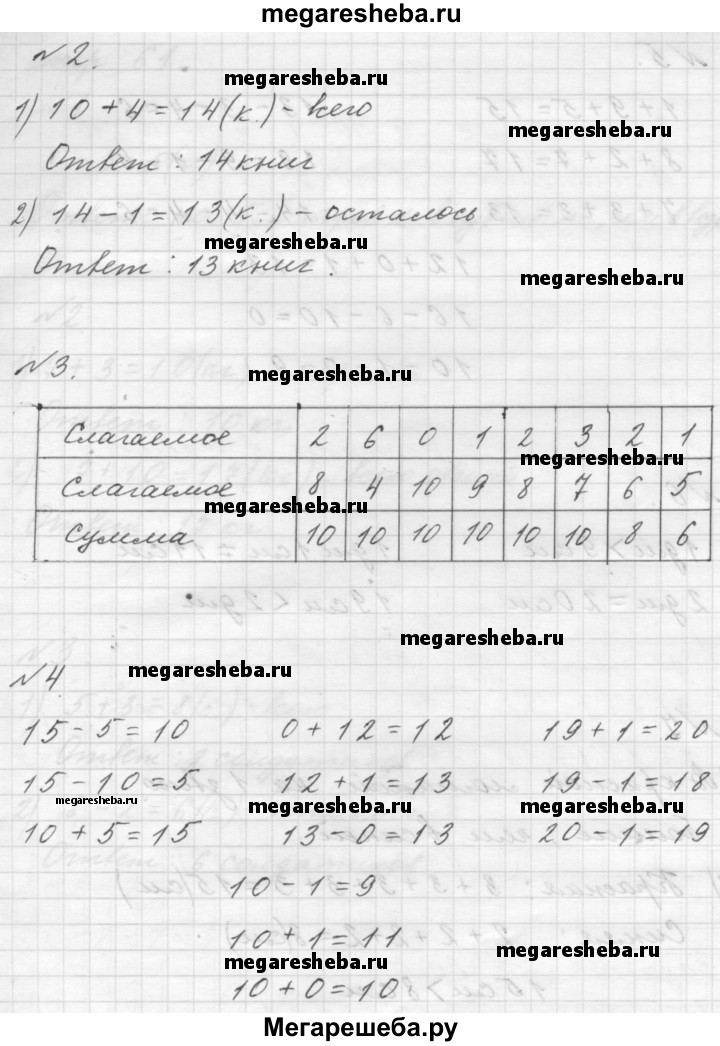 megaresheba.ru
№2.
megaresheba.ru
1) 10 + 4 = 14 (к.) - всего
megaresheba.ru
Ответ : 14 книг
2) 14 - 1 = 13 (к.) - осталось
megaresheba.ru
Ответ : 13 книг.
megaresheba.ru
№3.
megaresheba.ru
Слагаемое 2 6 0 1 2 3 2 1
megaresheba.ru
Слагаемое 8 4 10 9 8 7 6 5
megaresheba.ru
Сумма 10 10 10 10 10 10 8 6
megaresheba.ru
№4
megaresheba.ru
15 - 5 = 10 0 + 12 = 12 19 + 1 = 20
15 - 10 = 5 12 + 1 = 13 19 - 1 = 18
megaresheba.ru megaresheba.ru megaresheba.ru
10 + 5 = 15 13 - 0 = 13 20 - 1 = 19
10 - 1 = 9
10 + 1 = 11
megaresheba.ru megaresheba.ru
10 + 0 = 10
Мегарешеба.ру